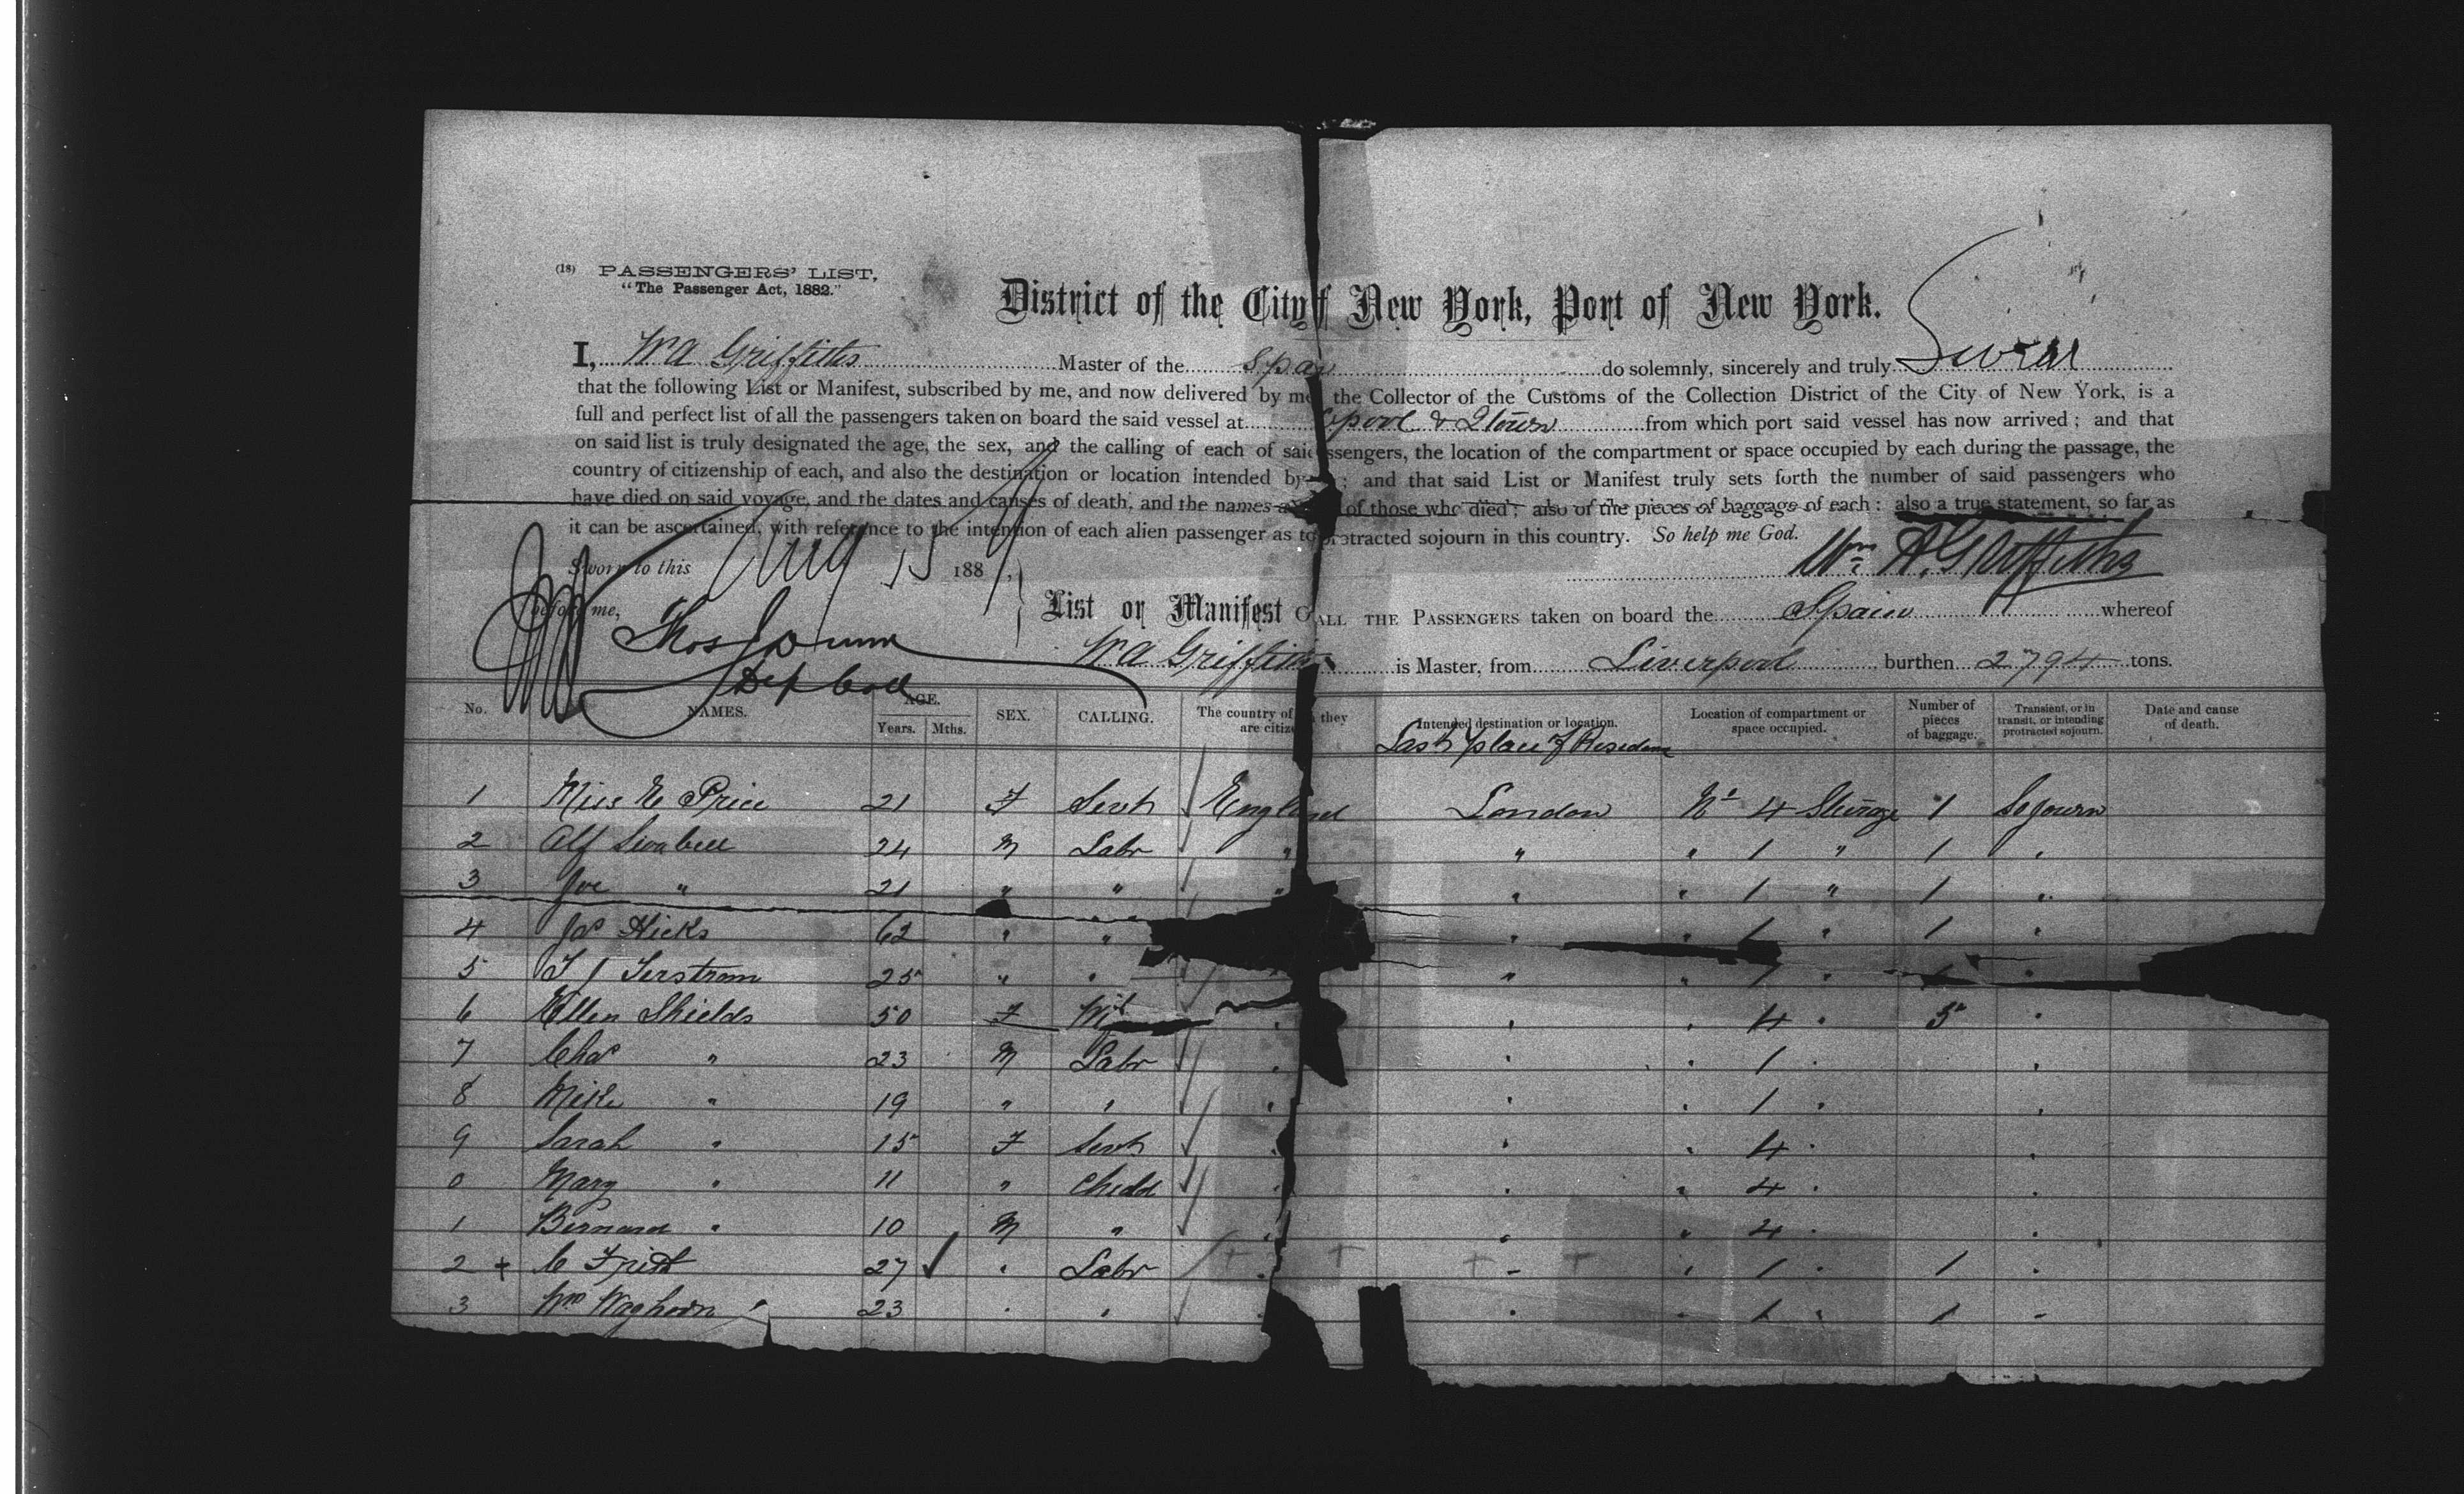 (18) PASSENGERS' LIST,
"The Passenger Act, 1882."
District of the City of New York, Port of New York.
I, W A Griffiths Master of the Spain do solemnly, sincerely and truly Swear
that the following List or Manifest, subscribed by me, and now delivered by me the Collector of the Customs of the Collection District of the City of New York, is a
full and perfect list of all the passengers taken on board the said vessel at Lpool & Qtown from which port said vessel has now arrived; and that
on said list is truly designated the age, the sex, and the calling of each of said ssengers, the location of the compartment or space occupied by each during the passage, the
country of citizenship of each, and also the destination or location intended by ; and that said List or Manifest truly sets forth the number of said passengers who
have died on said voyage, and the dates and causes of death, and the names of those who died; also of the pieces of baggage of each: also a true statement, so far as
it can be ascertained, with reference to the intention of each alien passenger as to protracted sojourn in this country. So help me God.
Sworn to this Aug 15 1889,
Wm. A. Griffiths
before me,
Thos Dunn
Dep Coll
List or Manifest OF ALL THE PASSENGERS taken on board the Spain whereof
W A Griffiths is Master, from Liverpool burthen 2794 tons.
No. NAMES. AGE. Years. Mths. SEX. CALLING. The country of they are citize Intended destination or location. Location of compartment or space occupied. Number of pieces of baggage. Transient, or in transit, or intending protracted sojourn. Date and cause of death.
Last place of Residence
1 Miss E Price 21 F Servt England London No 4 Steerage 1 Sojourn
2 Alf 24 M Labr " " " 1 " 1 "
3 Joe " 21 " " " " " 1 " 1 "
4 Jas Hicks 62 " " " " 1 " 1 "
5 T J 25 " " " " 1 " 1 "
6 Ellen Shields 50 F " " " 4 " 5 "
7 Chas " 23 M Labr " " " 1 " "
8 Mike " 19 " " " " " 1 " "
9 Sarah " 15 F Servt " " " 4 " "
0 Mary " 11 " Child " " " 4 "
1 Bernard " 10 M " " " " 4 " "
2 + C 27 " Labr " " " 1 " 1 "
3 Wm Waghorn 23 " " " " " 1 " 1 "